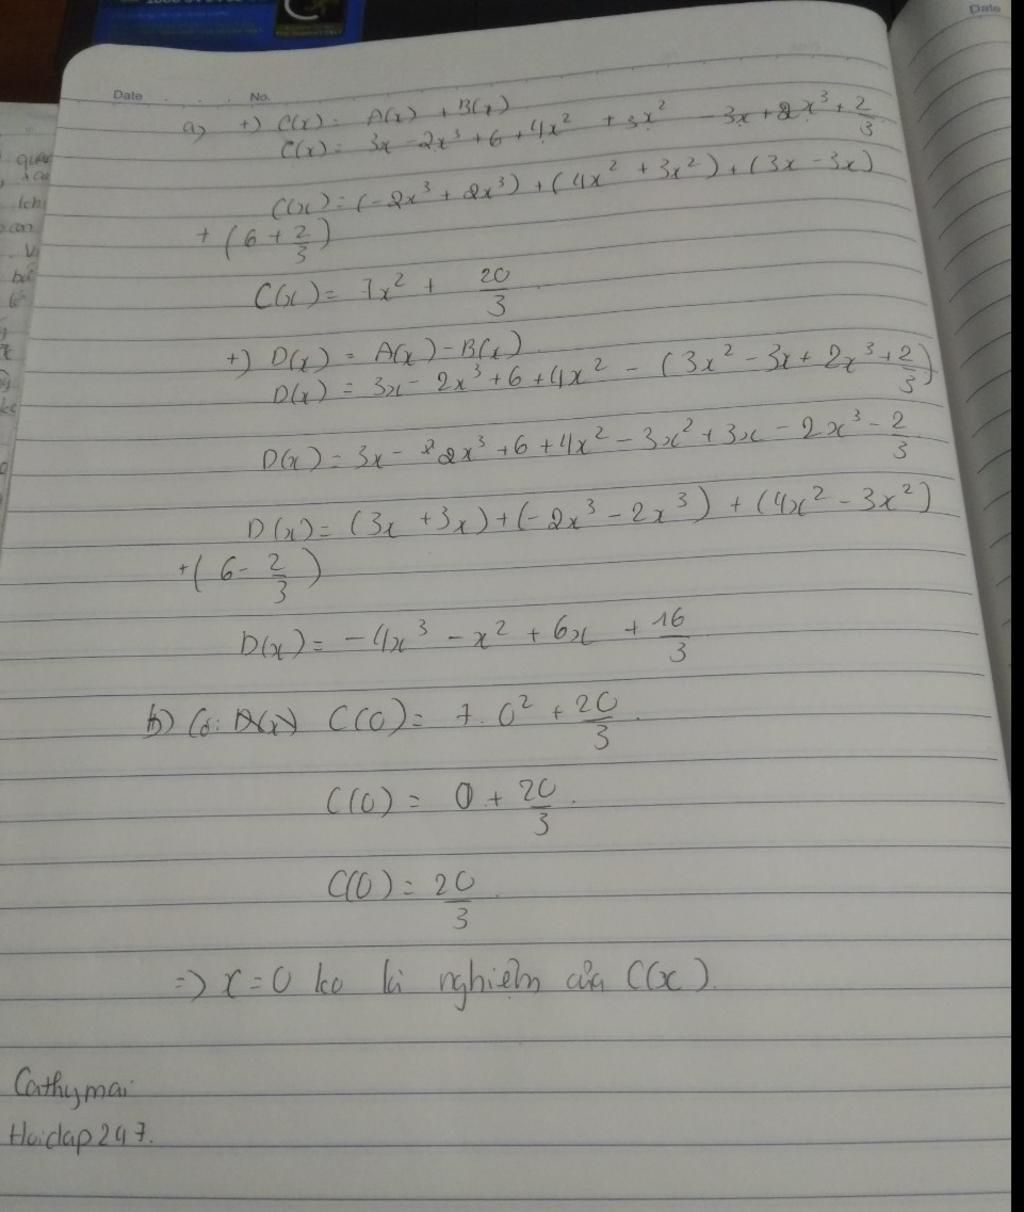 Date No. Date
a) +) C(x) = A(x) + B(x)
C(x) = 3x - 2x³ + 6 + 4x² + 3x² - 3x + 2x³ + 2/3
C(x) = (-2x³ + 2x³) + (4x² + 3x²) + (3x - 3x)
+ (6 + 2/3)
C(x) = 7x² + 20/3
+) D(x) = A(x) - B(x)
D(x) = 3x - 2x³ + 6 + 4x² - (3x² - 3x + 2x³ + 2/3)
D(x) = 3x - 2x³ + 6 + 4x² - 3x² + 3x - 2x³ - 2/3
D(x) = (3x + 3x) + (-2x³ - 2x³) + (4x² - 3x²)
+ (6 - 2/3)
D(x) = -4x³ - x² + 6x + 16/3
b) Có: C(0) = 7.0² + 20/3
C(0) = 0 + 20/3
C(0) = 20/3
=> x = 0 ko là nghiệm của C(x).
Cathymai
Hoidap247.